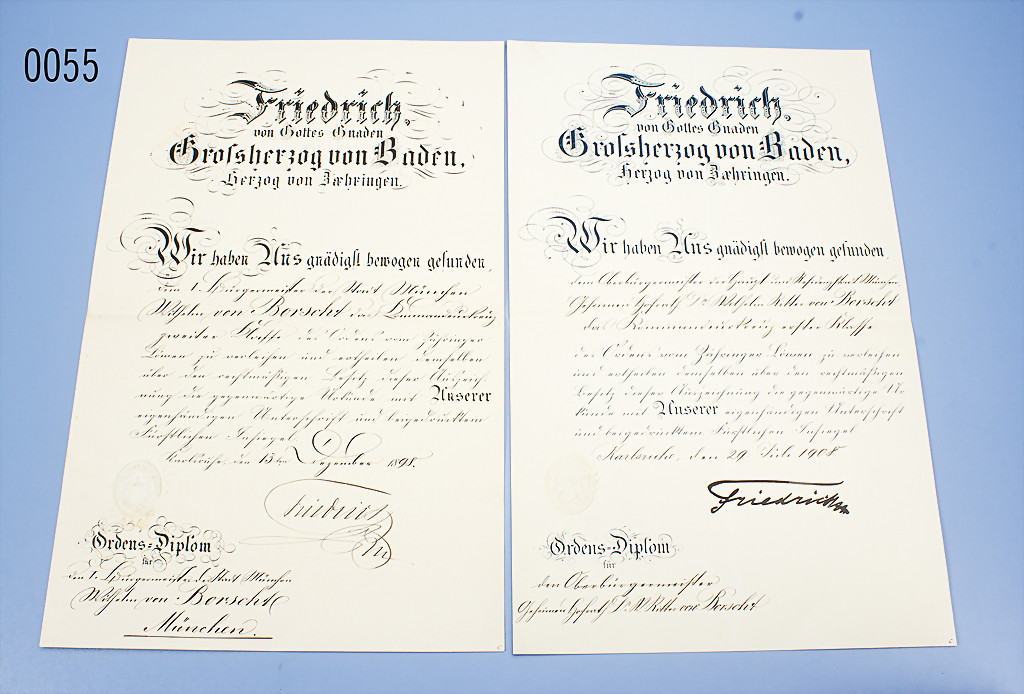 0055
Friedrich,
von Gottes Gnaden
Grossherzog von Baden,
Herzog von Zæhringen.
Wir haben Uns gnädigst bewogen gefunden,
dem 1. Bürgermeister der Stadt München
Wilhelm von Borscht das Commandeurkreuz
zweiter Klasse des Ordens vom Zähringer
Löwen zu verleihen und ertheilen demselben
über den rechtmäßigen Besitz dieser Auszeich-
nung die gegenwärtige Urkunde mit Unserer
eigenhändigen Unterschrift und beigedrucktem
Fürstlichen Insiegel.
Karlsruhe, den 13ten Dezember 1898.
Friedrich
Ordens-Diplom
für
den 1. Bürgermeister der Stadt München
Wilhelm von Borscht
München.
Friedrich,
von Gottes Gnaden
Grossherzog von Baden,
Herzog von Zæhringen.
Wir haben Uns gnädigst bewogen gefunden
dem Oberbürgermeister der Haupt und Residenzstadt München
Geheimen Hofrath Dr. Wilhelm Ritter von Borscht
das Kommandeurkreuz erster Klasse
des Ordens vom Zähringer Löwen zu verleihen
und ertheilen demselben über den rechtmäßigen
Besitz dieser Auszeichnung die gegenwärtige Ur
kunde mit Unserer eigenhändigen Unterschrift
und beigedrucktem Fürstlichen Insiegel
Karlsruhe, den 29 Juli 1908
Friedrich
Ordens-Diplom
für
den Oberbürgermeister
Geheimen Hofrath Dr. W. Ritter von Borscht